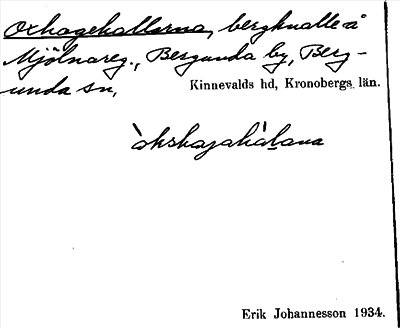 Oxhagehallarna, bergknalle å
Mjölnareg., Bergunda by, Berg-
unda sn,
Kinnevalds hd, Kronobergs län.
òkshagahàlana
Erik Johannesson 1934.